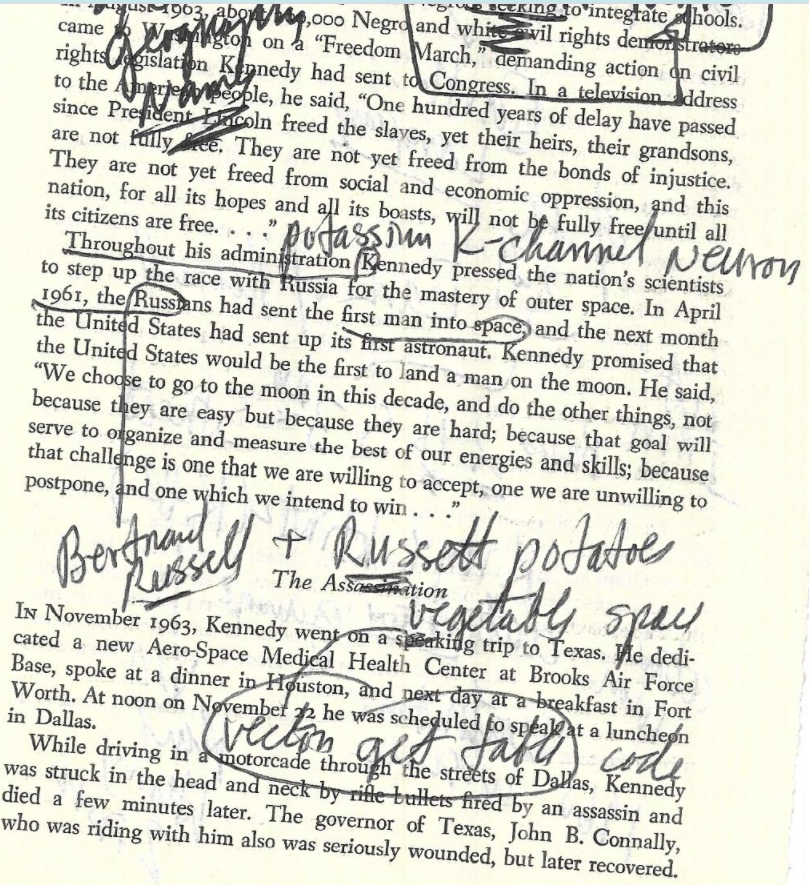 In August 1963, about 000 Negro and white civil rights demonstrators
seeking to integrate schools.
came to Washington on a “Freedom March,” demanding action on civil
Geography
rights legislation Kennedy had sent to Congress. In a television address
Name
to the American people, he said, “One hundred years of delay have passed
since President Lincoln freed the slaves, yet their heirs, their grandsons,
are not fully free. They are not yet freed from the bonds of injustice.
They are not yet freed from social and economic oppression, and this
nation, for all its hopes and all its boasts, will not be fully free until all
its citizens are free. . . .”
potassium K-channel neuron
Throughout his administration Kennedy pressed the nation’s scientists
to step up the race with Russia for the mastery of outer space. In April
1961, the Russians had sent the first man into space, and the next month
the United States had sent up its first astronaut. Kennedy promised that
the United States would be the first to land a man on the moon. He said,
“We choose to go to the moon in this decade, and do the other things, not
because they are easy but because they are hard; because that goal will
serve to organize and measure the best of our energies and skills; because
that challenge is one that we are willing to accept, one we are unwilling to
postpone, and one which we intend to win . . .”
Bertrand Russell + Russett potatoes
The Assassination
vegetable space
In November 1963, Kennedy went on a speaking trip to Texas. He dedi-
cated a new Aero-Space Medical Health Center at Brooks Air Force
Base, spoke at a dinner in Houston, and next day at a breakfast in Fort
Worth. At noon on November 22 he was scheduled to speak at a luncheon
in Dallas.
vector get table code
While driving in a motorcade through the streets of Dallas, Kennedy
was struck in the head and neck by rifle bullets fired by an assassin and
died a few minutes later. The governor of Texas, John B. Connally,
who was riding with him also was seriously wounded, but later recovered.